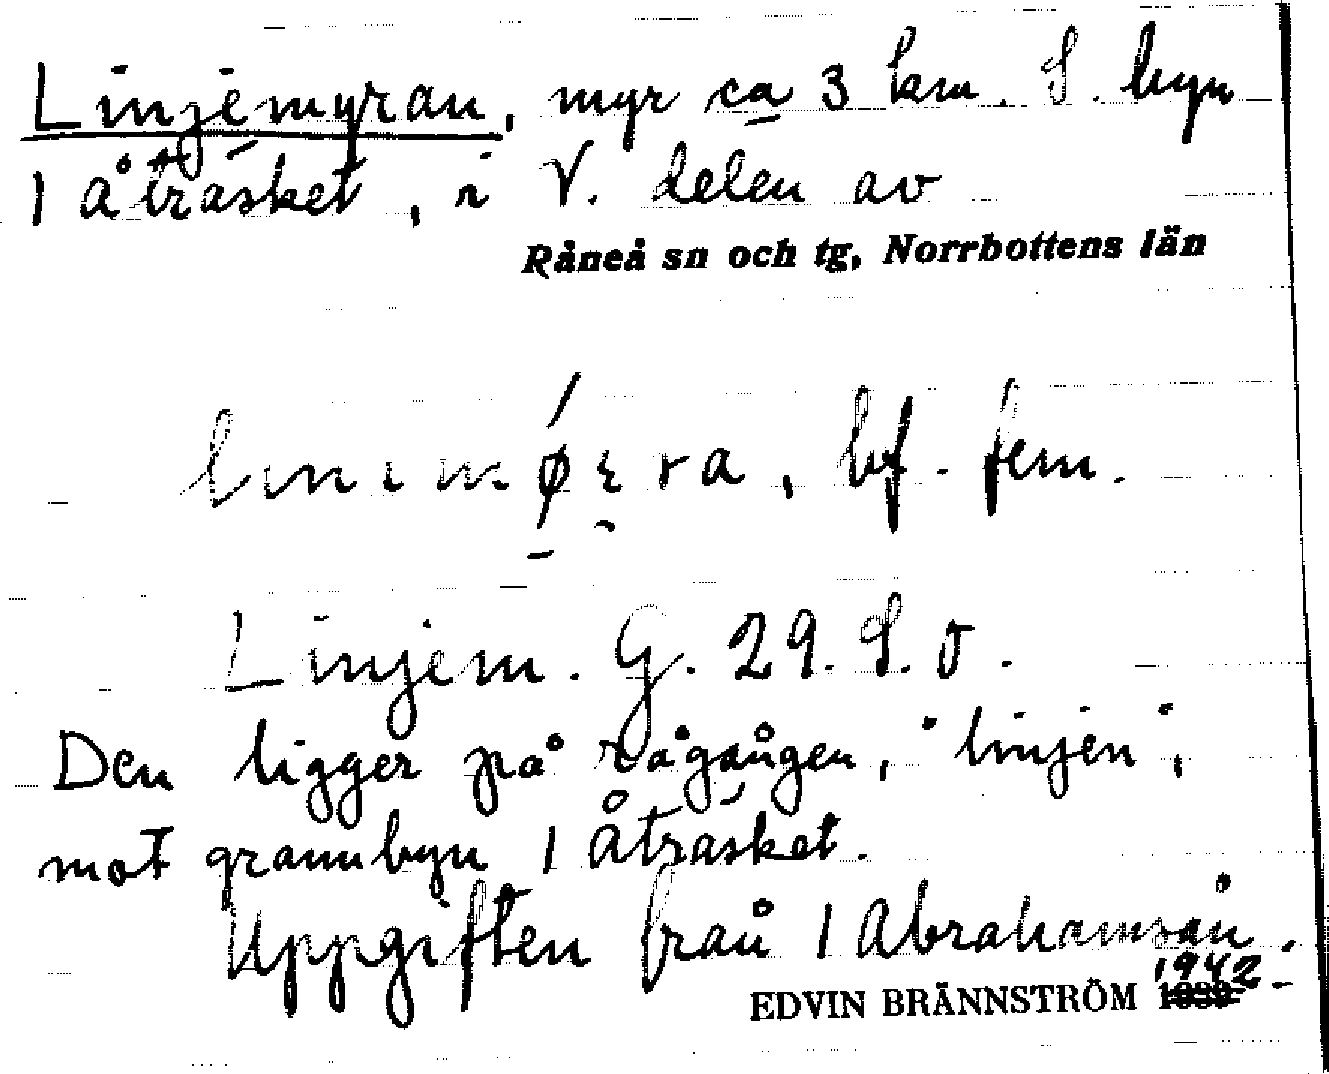 Linjemyran, myr ca 3 km. S. byn
Åträsket, i V. delen av
Råneå sn och tg, Norrbottens län
bf. fem.
Linjem. G. 29. S. O.
Den ligger på rågången, "linjen",
mot grannbyn Åträsket.
Uppgiften från Abrahamsån.
EDVIN BRÄNNSTRÖM 1942